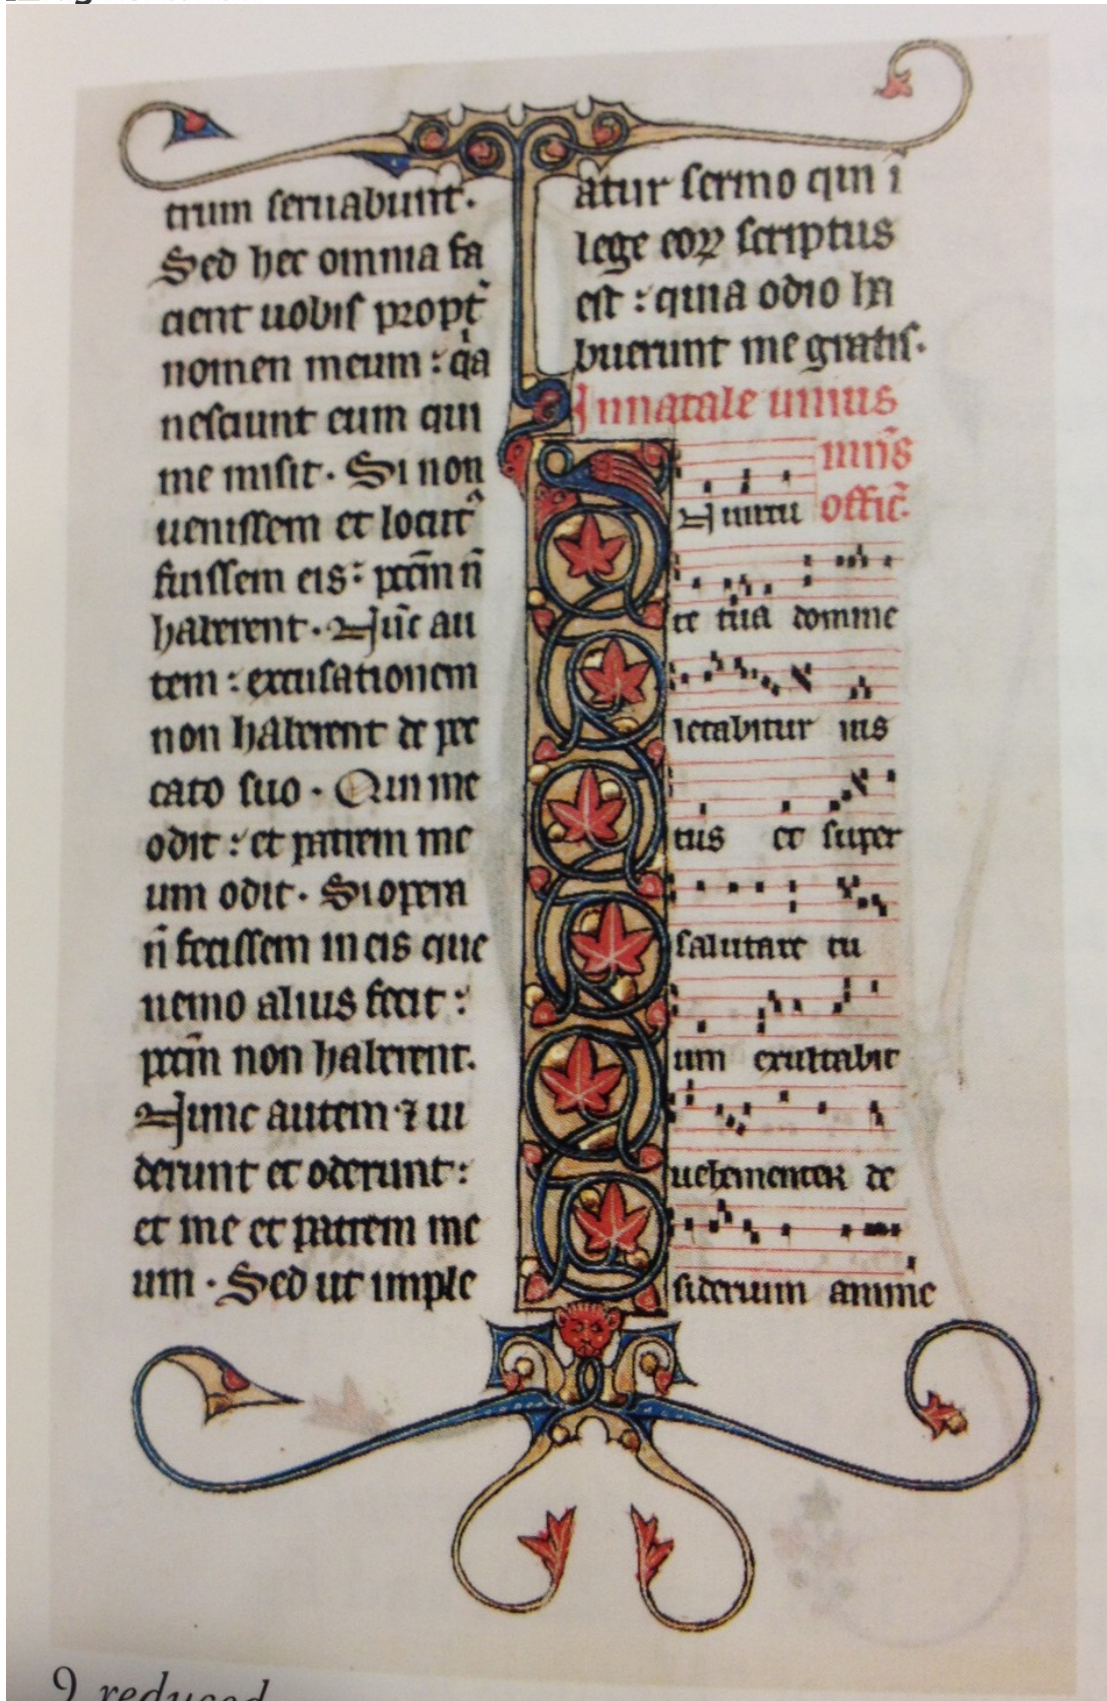 trum seruabunt.
Sed hec omnia fa
cient uobis propt̉
nomen meum : qͥa
nesciunt eum qui
me misit. Si non
uenissem et locut᷒
fuissem eis: pctm̄ n̄
haberent. Nūc au
tem : excusationem
non habent de pec
cato suo. Qui me
odit : et patrem me
um odit. Si opera
n̄ fecissem in eis que
nemo alius fecit :
pctm̄ non haberent.
Nunc autem ⁊ ui
derunt et oderunt :
et me et patrem me
um. Sed ut imple
atur sermo qui ī
lege eoꝝ scriptus
est : quia odio ha
buerunt me gratis.
In natale unius
mr̄is
offic̄.
In uirtu
te tua domine
letabitur ius
tus et super
salutare tu
um exultabit
uehementer de
siderium anime
9 reduced